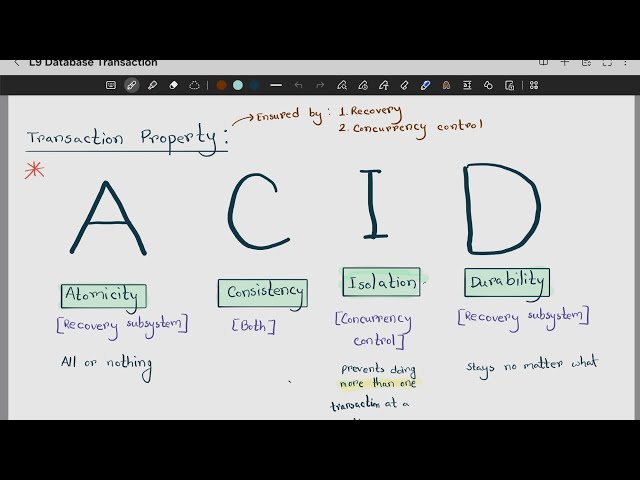 L9 Database Transaction
Transaction Property:
Ensured by: 1. Recovery
2. Concurrency control
A C I D
Atomicity Consistency Isolation Durability
[Recovery subsystem] [Both] [Concurrency control] [Recovery subsystem]
All or nothing
prevents doing
more than one
transaction at a
stays no matter what